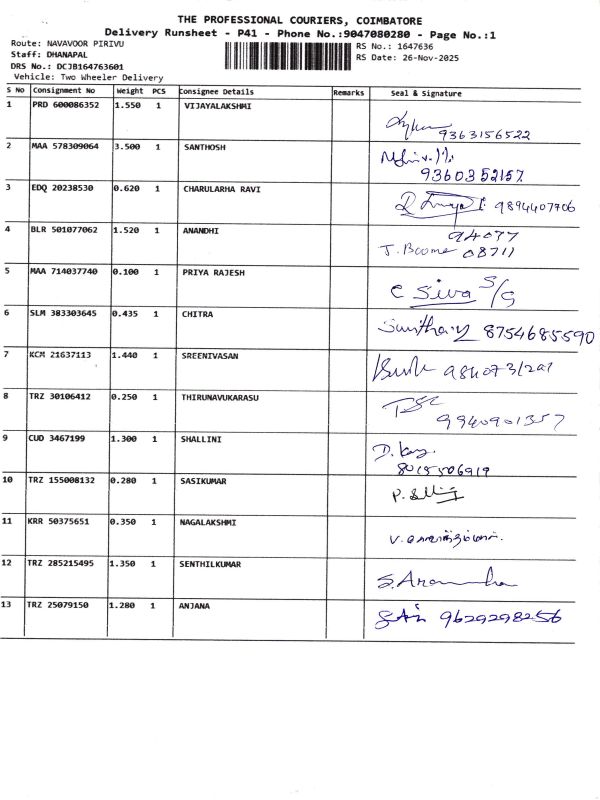 THE PROFESSIONAL COURIERS, COIMBATORE
Delivery Runsheet - P41 - Phone No.:9047080280 - Page No.:1
Route: NAVAVOOR PIRIVU
RS No.: 1647636
Staff: DHANAPAL
RS Date: 26-Nov-2025
DRS No.: DCJB164763601
Vehicle: Two Wheeler Delivery
S No Consignment No Weight PCS Consignee Details Remarks Seal & Signature
1 PRD 600086352 1.550 1 VIJAYALAKSHMI
9363156522
2 MAA 578309064 3.500 1 SANTHOSH
9360352157
3 EDQ 20238530 0.620 1 CHARULARHA RAVI
9894407706
4 BLR 501077062 1.520 1 ANANDHI
94077
08711
5 MAA 714037740 0.100 1 PRIYA RAJESH
C Siva S/G
6 SLM 383303645 0.435 1 CHITRA
8754685590
7 KCM 21637113 1.440 1 SREENIVASAN
8 TRZ 30106412 0.250 1 THIRUNAVUKARASU
9940901357
9 CUD 3467199 1.300 1 SHALLINI
8015506919
10 TRZ 155008132 0.280 1 SASIKUMAR
11 KRR 50375651 0.350 1 NAGALAKSHMI
12 TRZ 285215495 1.350 1 SENTHILKUMAR
13 TRZ 25079150 1.280 1 ANJANA
9629298256